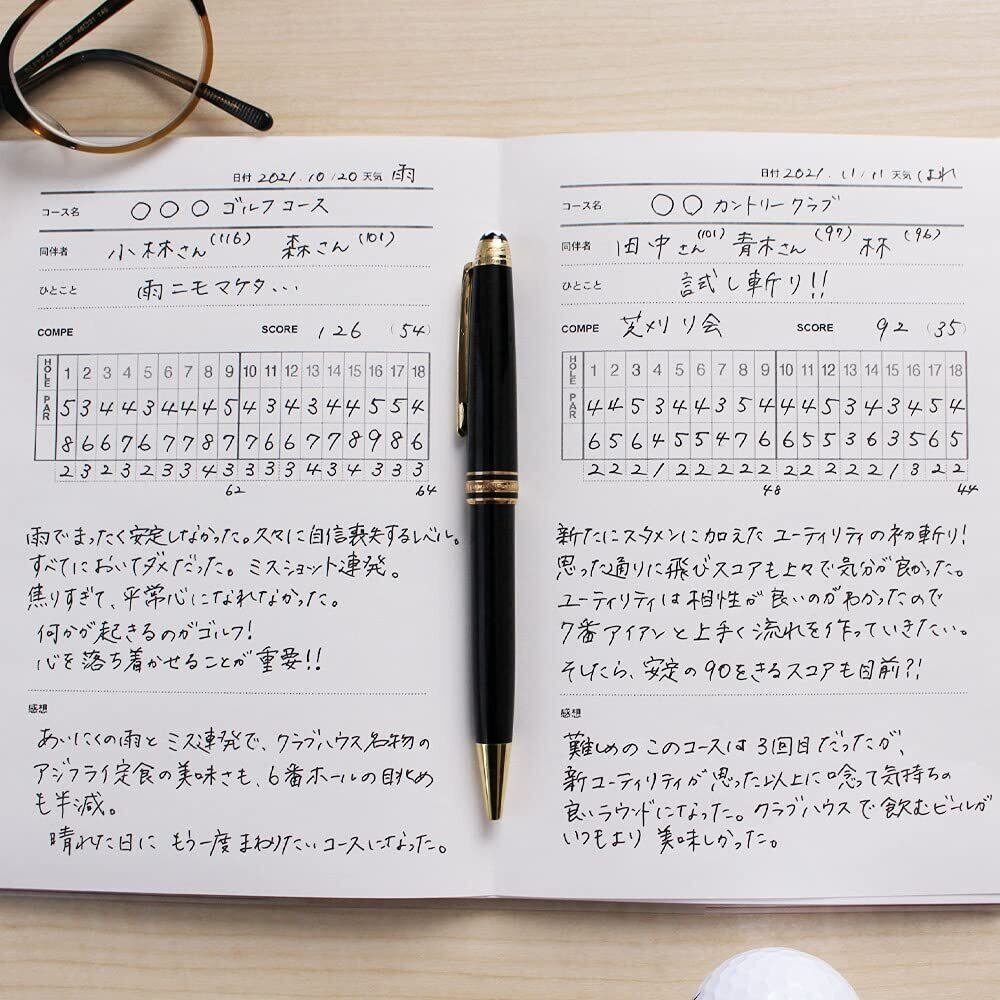 日付 2021.10/20 天気 雨
コース名 ○○○ゴルフコース
同伴者 小林さん(116) 森さん(101)
ひとこと 雨ニモマケタ...
COMPE SCORE 126 (54)
HOLE 1 2 3 4 5 6 7 8 9 10 11 12 13 14 15 16 17 18
PAR 5 3 4 4 3 4 4 4 5 4 3 4 3 4 4 5 5 4
8 6 6 7 6 7 7 8 7 7 6 6 7 7 8 9 8 6
2 3 2 3 2 3 3 4 3 2 3 3 3 4 3 4 3 3 3
62 64
雨でまったく安定しなかった。久々に自信喪失するレベル。
すべてにおいてダメだった。ミスショット連発。
焦りすぎて、平常心になれなかった。
何かが起きるのがゴルフ!
心を落ち着かせることが重要!!
感想
あいにくの雨とミス連発で、クラブハウス名物の
アジフライ定食の美味さも、6番ホールの眺め
も半減。
晴れた日にもう一度まわりたいコースになった。
日付 2021.11/11 天気 はれ
コース名 ○○カントリークラブ
同伴者 田中さん(101) 青木さん(97) 林(96)
ひとこと 試し斬り!!
COMPE 芝刈り会 SCORE 92 (35)
HOLE 1 2 3 4 5 6 7 8 9 10 11 12 13 14 15 16 17 18
PAR 4 4 5 3 4 4 3 5 4 4 4 5 3 4 3 4 5 4
6 5 6 4 5 5 4 7 6 6 5 5 3 6 3 5 6 5
2 2 2 1 2 2 2 2 2 2 2 2 2 2 1 3 2 2
48 44
新たにスタメンに加えたユーティリティの初斬り!
思った通りに飛びスコアも上々で気分が良かった。
ユーティリティは相性が良いのがわかったので
7番アイアンと上手く流れを作っていきたい。
そしたら、安定の90をきるスコアも目前?!
感想
難しめのこのコースは3回目だったが、
新ユーティリティが思った以上に唸って気持ちの
良いラウンドになった。クラブハウスで飲むビールが
いつもより美味しかった。